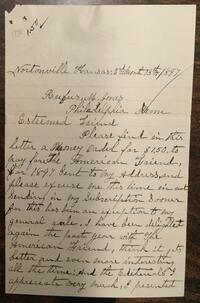 1.50
Nortonville Kansas: 2nd Mont. 15th 1897
Rufus M. Jones
Philadelphia Penna
Esteemed Friend
Please find in this
letter a Money Order for $1.50, to
pay for The American Friend,
for 1897 Sent to my Address, and
please excuse me this time in not
sending in my Subscription Sooner
for this has been an exception to my
general rule, I have been delighted
again the past year with the
American Friend, think it gets
better and even more interesting
all the time; And the Editorials I
appreciate very much, I presented